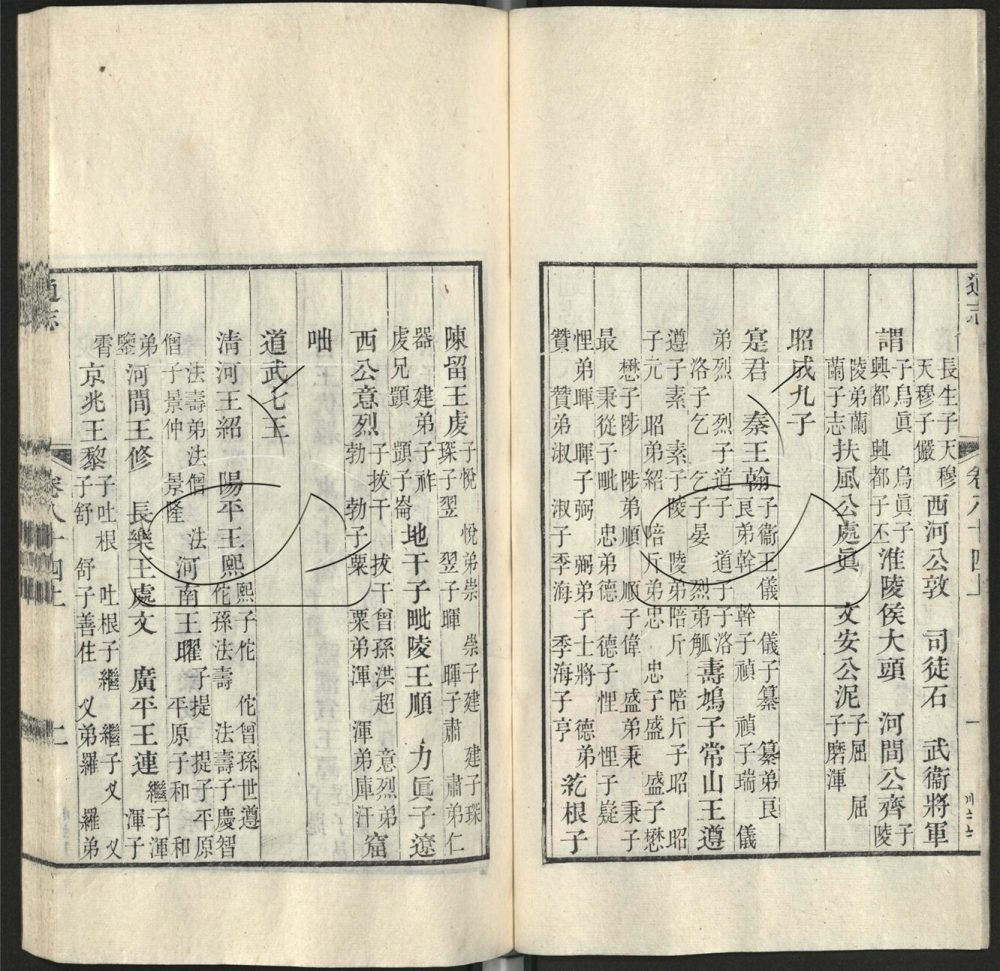 通志
卷八十四上
一
長生子天穆
天穆子儼
西河公敦 司徒石 武衞將軍
謂
子烏眞 烏眞子
興都 興都子丕
淮陵侯大頭 河間公齊
子
陵
陵弟蘭
蘭子志
扶風公處眞 文安公泥
子屈 屈
子磨渾
昭成九子
寔君 秦王翰
子衞王儀 儀子纂 纂弟良
良弟幹 幹子禎 禎子瑞 儀
弟烈 烈子道子 道子子洛
洛子乞 乞子晏 烈弟觚
壽鳩子常山王遵
遵子素 素子陵 陵弟陪斤 陪斤子昭 昭
子元 昭弟紹 陪斤弟忠 忠子盛 盛子懋
懋子陟 陟弟順 順子偉 盛弟秉 秉子
最 秉從子毗 忠弟德 德子悝 悝子嶷
悝弟暉 暉子弼 弼弟子士將 德弟
贊 贊弟淑 淑子季海 季海子亨
紇根子
陳留王虔
子悅 悅弟崇 崇子建 建子琛
琛子翌 翌子暉 暉子肅 肅弟仁
器 建弟子祚
虔兄顗 顗子崙
地干子毗陵王順 力眞子遼
西公意烈
子拔干 拔干曾孫洪超 意烈弟
勃 勃子粟 粟弟渾 渾弟庫汗
窟
咄
道武七王
清河王紹 陽平王熙
熙子佗 佗曾孫世遵
佗孫法壽 法壽子慶智
法壽弟法僧 法
僧子景仲 景隆
河南王曜
子提 提子平原
平原子和 和
弟
鑒
河間王修 長樂王處文 廣平王連
繼子渾
渾子
霄
京兆王黎
子吐根 吐根子繼 繼子义 义
子舒 舒子善住 义弟羅 羅弟
通志
卷八十四上
二